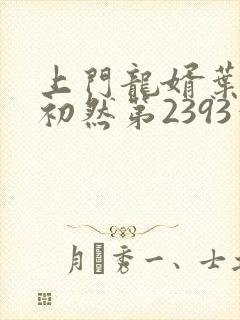 上門龍婿葉
初然第2393
月秀一、士